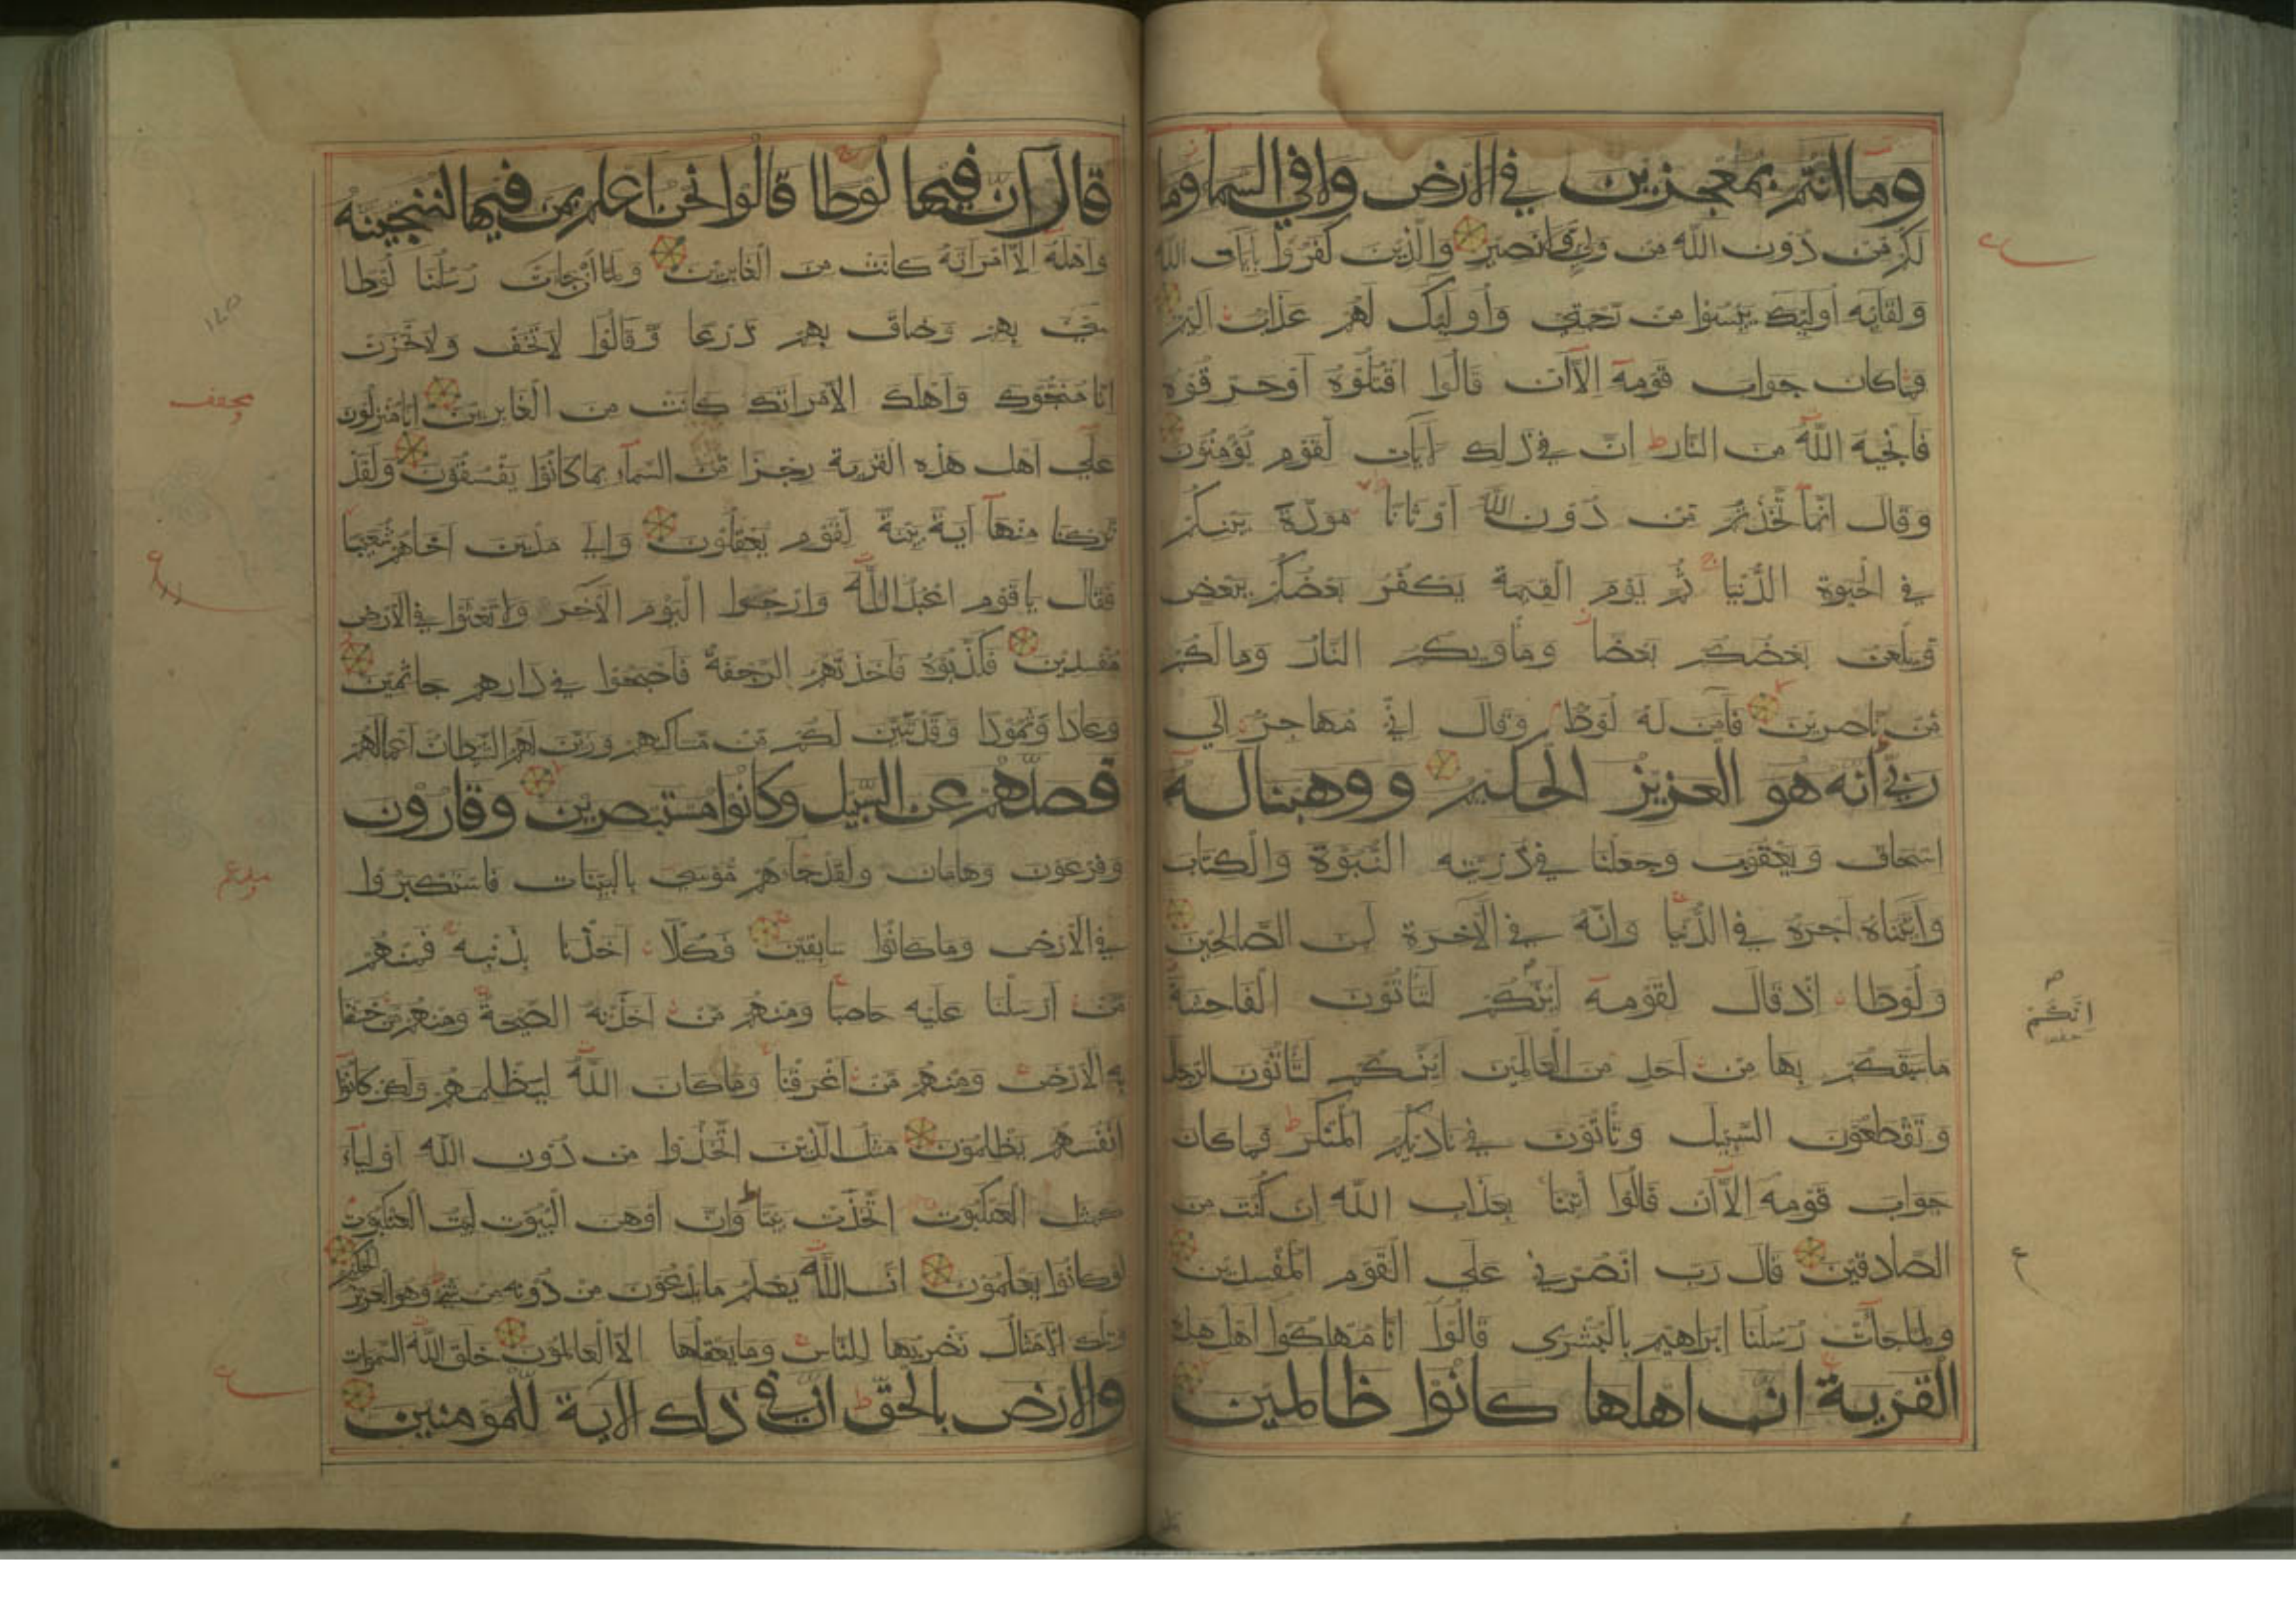 وما انتم بمعجزين في الارض ولا في السما وما
لكم من دون الله من ولي ولا نصير والذين كفروا بايات الله
ولقائه اوليك ييسوا من رحمتي واوليك لهم عذاب اليم
فما كان جواب قومه الا ان قالوا اقتلوه او حرقوه
فانجيه الله من النار ان في ذلك لايات لقوم يؤمنون
وقال انما اتخذتم من دون الله اوثانا مودة بينكم
في الحيوة الدنيا ثم يوم القيمة يكفر بعضكم ببعض
ويلعن بعضكم بعضا وماويكم النار وما لكم
من ناصرين فامن له لوط وقال اني مهاجر الي
ربي انه هو العزيز الحكيم ووهبنا له
اسحاق ويعقوب وجعلنا في ذريته النبوة والكتاب
واتيناه اجره في الدنيا وانه في الآخرة لمن الصالحين
ولوطا اذ قال لقومه ائنكم لتاتون الفاحشة
ما سبقكم بها من احد من العالمين ائنكم لتاتون الرجال
وتقطعون السبيل وتاتون في ناديكم المنكر فما كان
جواب قومه الا ان قالوا ائتنا بعذاب الله ان كنت من
الصادقين قال رب انصرني علي القوم المفسدين
ولما جات رسلنا ابراهيم بالبشري قالوا انا مهلكوا اهل هذه
القرية ان اهلها كانوا ظالمين
انكم
ع
قال ان فيها لوطا قالوا نحن اعلم بمن فيها لننجينه
واهله الا امراته كانت من الغابرين ولما ان جات رسلنا لوطا
سي بهم وضاق بهم ذرعا وقالوا لا تخف ولا تحزن
انا منجوك واهلك الا امراتك كانت من الغابرين انا منزلون
علي اهل هذه القرية رجزا من السماء بما كانوا يفسقون ولقد
تركنا منها آية بينة لقوم يعقلون والي مدين اخاهم شعيبا
فقال يا قوم اعبدوا الله وارجوا اليوم الآخر ولا تعثوا في الارض
مفسدين فكذبوه فاخذتهم الرجفة فاصبحوا في دارهم جاثمين
وعادا وثمودا وقد تبين لكم من مساكنهم وزين لهم الشيطان اعمالهم
فصدهم عن السبيل وكانوا مستبصرين وقارون
وفرعون وهامان ولقد جاءهم موسي بالبينات فاستكبروا
في الارض وما كانوا سابقين فكلا اخذنا بذنبه فمنهم
من ارسلنا عليه حاصبا ومنهم من اخذته الصيحة ومنهم من خسفنا
به الارض ومنهم من اغرقنا وما كان الله ليظلمهم ولكن كانوا
انفسهم يظلمون مثل الذين اتخذوا من دون الله اولياء
كمثل العنكبوت اتخذت بيتا وان اوهن البيوت لبيت العنكبوت
لو كانوا يعلمون ان الله يعلم ما يدعون من دونه من شي وهو العزيز الحكيم
وتلك الامثال نضربها للناس وما يعقلها الا العالمون خلق الله السموات
والارض بالحق ان في ذلك لاية للمومنين